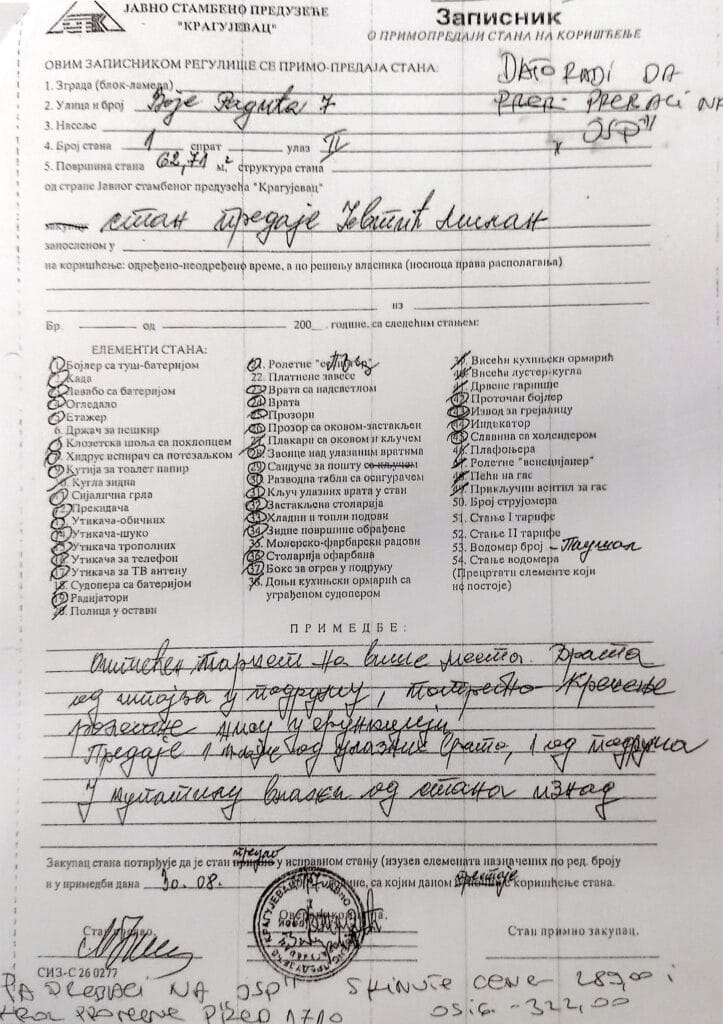 ЈАВНО СТАМБЕНО ПРЕДУЗЕЋЕ
"КРАГУЈЕВАЦ"
Записник
О ПРИМОПРЕДАЈИ СТАНА НА КОРИШЋЕЊЕ
ОВИМ ЗАПИСНИКОМ РЕГУЛИШЕ СЕ ПРИМО-ПРЕДАЈА СТАНА:
DATO RADI DA
PRER. PREBACI NA
x OSP"
1. Зграда (блок-ламела)
2. Улица и број Воје Радића 7
3. Насеље
4. Број стана 1 спрат улаз II
5. Површина стана 62,71 м,² структура стана
од стране Јавног стамбеног предузећа "Крагујевац"
закупцу стан предаје Јевтић Милан
запосленом у
на коришћење: одређено-неодређено време, а по решењу власника (носиоца права располагања)
из
Бр. од 200 . године, са следећим стањем:
ЕЛЕМЕНТИ СТАНА:
1. Бојлер са туш-батеријом
2. Када
3. Лавабо са батеријом
4. Огледало
5. Етажер
6. Држач за пешкир
7. Клозетска шоља са поклопцем
8. Хидрус испирач са потезаљком
9. Кутија за тоалет папир
10. Кугла зидна
11. Сијалична грла
12. Прекидача
13. Утикача-обичних
14. Утикача-шуко
15. Утикача трополних
16. Утикача за телефон
17. Утикача за ТВ антену
18. Судопера са батеријом
19. Радијатори
20. Полица у остави
21. Ролетне
22. Платнене завесе
23. Врата са надсветлом
24. Врата
25. Прозори
26. Прозор са оковом-застакљен
27. Плакари са оковом и кључем
28. Звонце над улазним вратима
29. Сандуче за пошту са кључем
30. Разводна табла са осигурачем
31. Кључ улазних врата у стан
32. Застакљена столарија
33. Хладни и топли подови
34. Зидне површине обрађене
35. Молерско-фарбарски радови
36. Столарија офарбана
37. Бокс за огрев у подруму
38. Доњи кухињски ормарић са
уграђеном судопером
39. Висећи кухињски ормарић
40. Висећи лустер-кугла
41. Дрвене гарнише
42. Проточан бојлер
43. Извод за грејалицу
44. Индикатор
45. Славина са холендером
46. Плафоњера
47. Ролетне "венецијанер"
48. Пећи на гас
49. Прикључни вентил за гас
50. Број струјомера
51. Стање I тарифе
52. Стање II тарифе
53. Водомер број - Паушал
54. Стање водомера
(Прецртати елементе који
не постоје)
ПРИМЕДБЕ:
Оштећен паркет на више места. Врата
од у подруму, потребно кречење
у
Предаје 1 од улазних врата, 1 од подрума
У купатилу влажи од стана изнад
Закупац стана потврђује да је стан предао у исправном стању (изузев елемената назначених по ред. броју
и у примедби дана 30.08. године, са којим даном престаје коришћење стана.
Стан примио закупац.
СИЗ-С 26 0277
PA PREBACI NA OSP" SKINUTE CENE 289,00 i
PROMENE PRED 1710 OSIG. -322,00